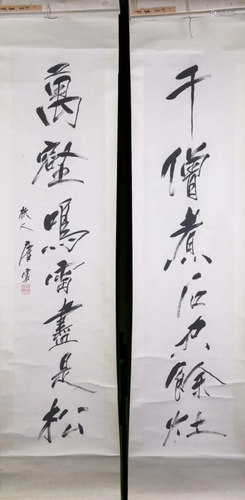 千僧煮石只餘灶
萬壑鳴雷盡是松
杭人唐雲